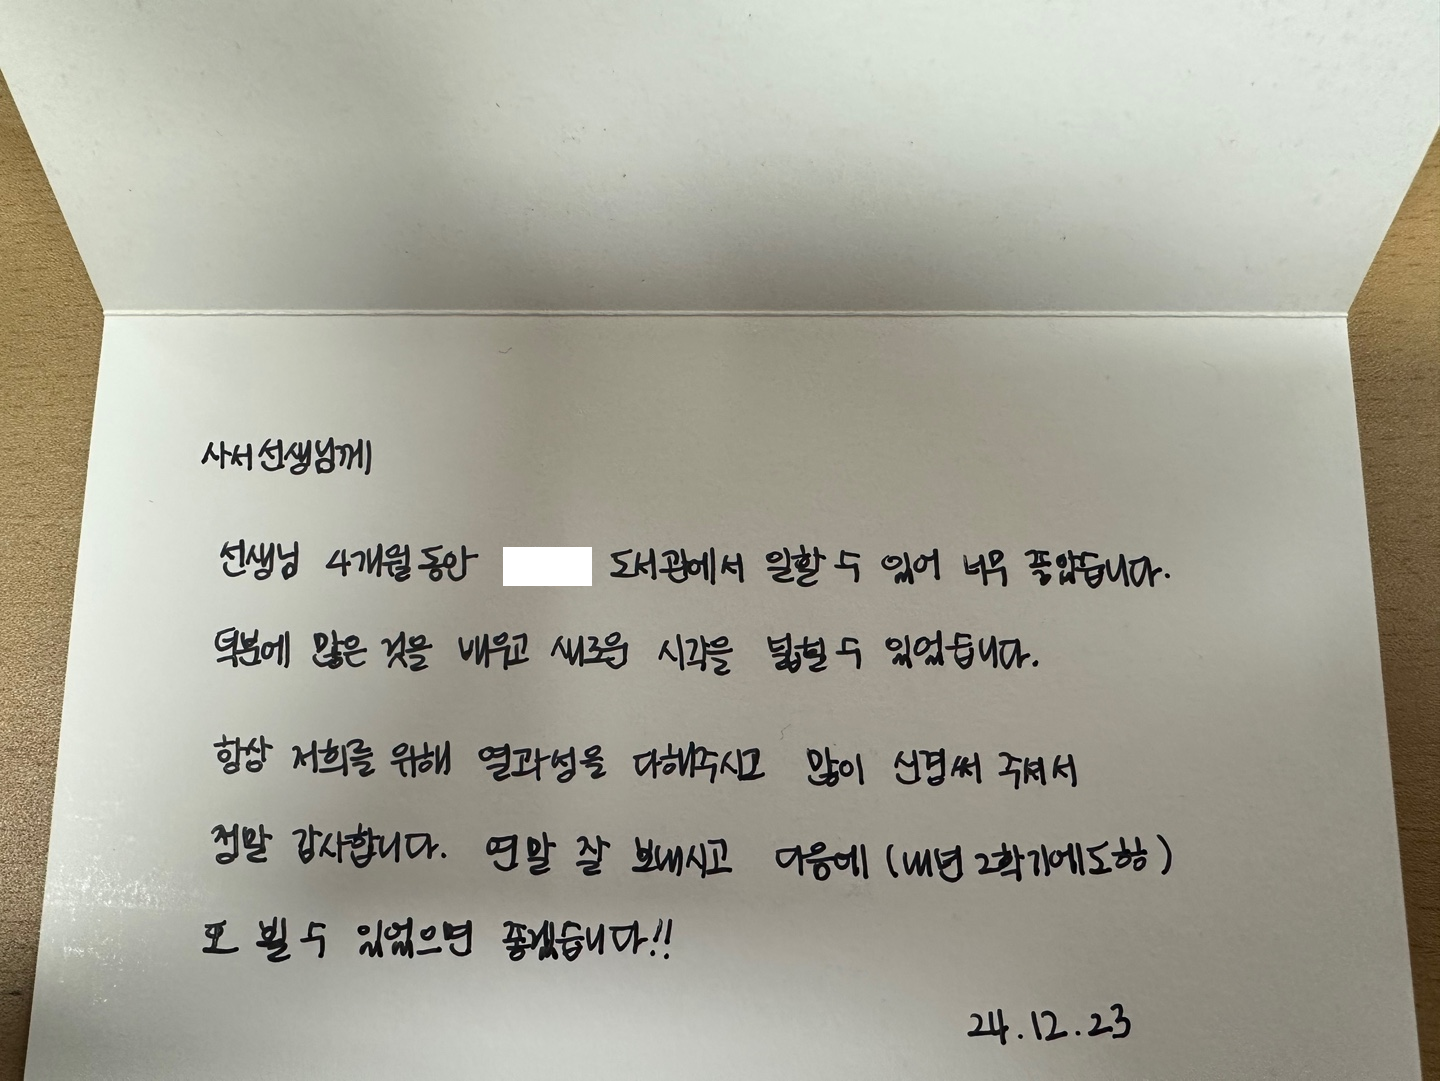 사서선생님께
선생님 4개월동안 도서관에서 일할 수 있어 너무 좋았습니다.
덕분에 많은 것을 배우고 새로운 시각을 넓힐 수 있었습니다.
항상 저희를 위해 열과성을 다해주시고 많이 신경써 주셔서
정말 감사합니다. 연말 잘 보내시고 다음에 (내년 2학기에도하하)
또 뵐 수 있었으면 좋겠습니다!!
24.12.23